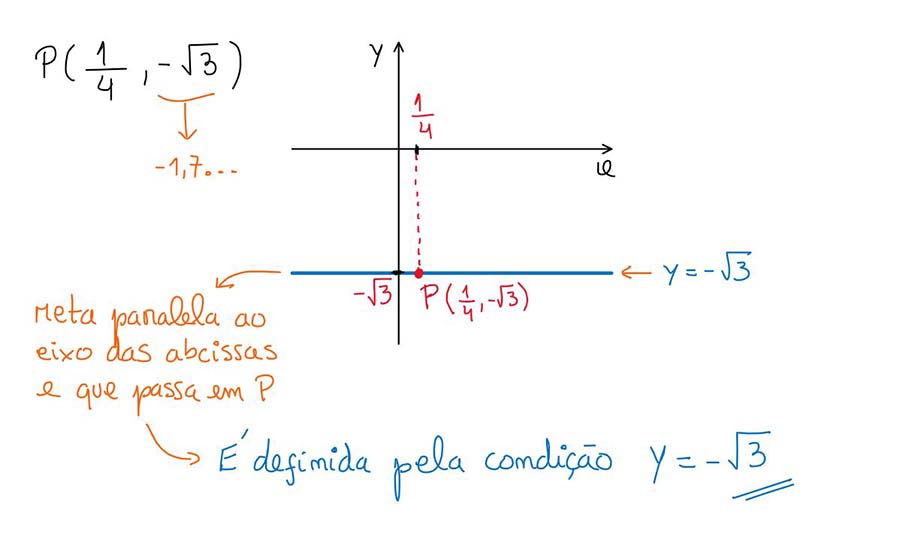 P(1/4, -√3)
-1,7...
y
1/4
x
y = -√3
-√3
P(1/4, -√3)
reta paralela ao
eixo das abcissas
e que passa em P
É definida pela condição y = -√3